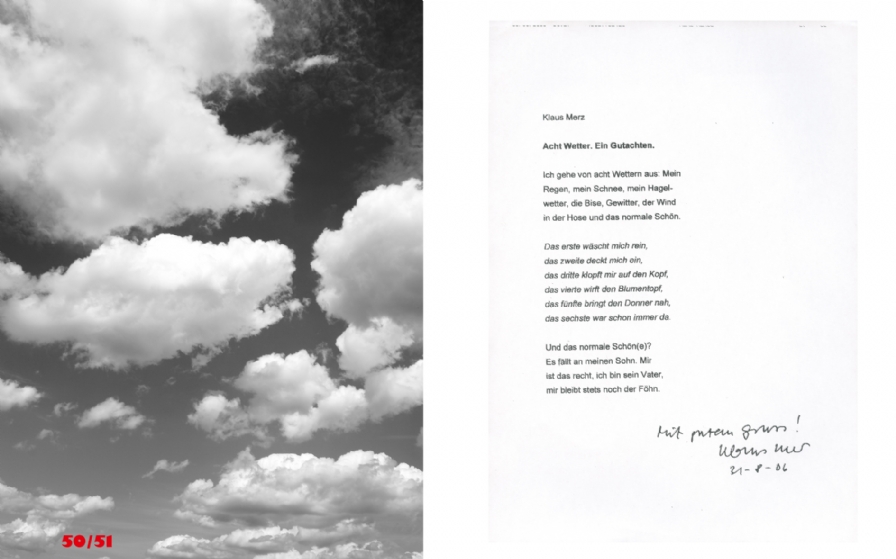 50/51
Klaus Merz
Acht Wetter. Ein Gutachten.
Ich gehe von acht Wettern aus: Mein
Regen, mein Schnee, mein Hagel-
wetter, die Bise, Gewitter, der Wind
in der Hose und das normale Schön.
Das erste wäscht mich rein,
das zweite deckt mich ein,
das dritte klopft mir auf den Kopf,
das vierte wirft den Blumentopf,
das fünfte bringt den Donner nah,
das sechste war schon immer da.
Und das normale Schön(e)?
Es fällt an meinen Sohn. Mir
ist das recht, ich bin sein Vater,
mir bleibt stets noch der Föhn.
Mit gutem Gruss!
Klaus Merz
21-8-06